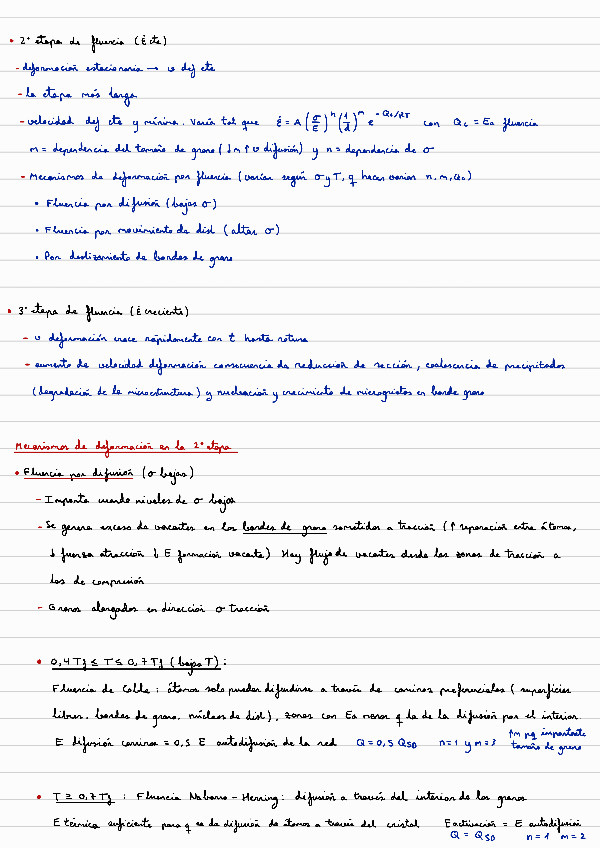 • 2ª etapa de fluencia (ε̇ cte)
- deformación estacionaria → v def cte
- la etapa más larga
- velocidad def cte y mínima. Varía tal que ε̇ = A (σ/E)^n (1/d)^m e^-Qc/RT con Qc = Ea fluencia
m = dependencia del tamaño de grano (↓m ↑v difusión) y n = dependencia de σ
- Mecanismos de deformación por fluencia (varían según σ y T, q hacen variar n, m, Qc)
• Fluencia por difusión (bajas σ)
• Fluencia por movimiento de disl (altas σ)
• Por deslizamiento de bordes de grano
• 3ª etapa de fluencia (ε̇ creciente)
- v deformación crece rápidamente con t hasta rotura
- aumento de velocidad deformación consecuencia de reducción de sección, coalescencia de precipitados
(degradación de la microestructura) y nucleación y crecimiento de microgrietas en borde grano
Mecanismos de deformación en la 2ª etapa
• Fluencia por difusión (σ bajas)
- Importa cuando niveles de σ bajos
- Se genera exceso de vacantes en los bordes de grano sometidos a tracción (↑ separación entre átomos,
↓ fuerza atracción ↓ E formación vacante) Hay flujo de vacantes desde las zonas de tracción a
las de compresión
- Granos alargados en dirección σ tracción
• 0,4 Tf ≤ T ≤ 0,7 Tf (bajas T):
Fluencia de Coble: átomos solo pueden difundirse a través de caminos preferenciales (superficies
libres, bordes de grano, núcleos de disl), zonas con Ea menor q la de la difusión por el interior.
E difusión caminos = 0,5 E autodifusión de la red Q = 0,5 QSD n=1 y m=3 ↑m pq importante
tamaño de grano
• T ≥ 0,7 Tf : Fluencia Nabarro-Herring: difusión a través del interior de los granos
E térmica suficiente para q se da difusión de átomos a través del cristal Eactivación = E autodifusión
Q = QSD n=1 m=2